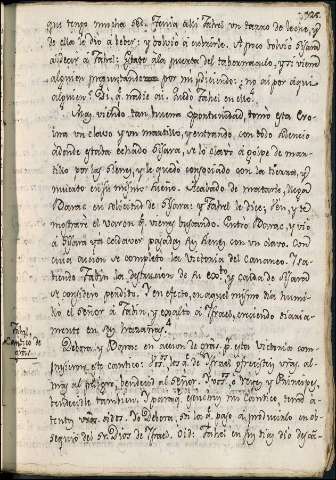 que tengo mucha sed. Tenia alli Jahel un tarro de leche, y
de ella le dio a beber: y bolvio a cubrirle. A poco bolvio Sisara
a decir a Jahel: Estate a la puerta del tabernaculo, y si viene
alguien preguntando por mi, diciendo: no ai por aqui
alguien? Di, q.e nadie ai. Quedo Jahel en ello.
Mas, viendo tan buena oportunidad, tomó esta Ero-
ina un clavo y un martillo, y entrando, con todo silencio
adonde estaba echado Sisara, se lo clavó a golpe de mar-
tillo por las sienes, y le quedó con la tierra, y
muerto en su mismo sueño. Acabado de matarlo, llega
Barac en solicitud de Sisara: y Jahel le dice: Ven, y te
mostraré el varon q.e vienes buscando. Entró Barac, y vió
a Sisara ya cadaver pasadas sus sienes con un clavo. Con
cuia accion se completó la Victoria del Cananeo.
Jabin la de su ex.to, y caida de Sisara
se consideró perdido. I en efecto, en aquel mismo dia humi-
lló el Señor a Jabin, y exaltó a Israel, creciendo diaria-
mente en sus hazañas.
Debora, y Barac en accion de gracias p.r esta Victoria com-
pusieron este cantico: los q.e de Israel ofrecisteis vras. al-
mas al peligro, bendecid al Señor. I vos.s, o Reyes y Principes,
bendecidle tambien. I para q.e escucheis mi Cantico, tened a-
tentos vros. oidos. Io Debora, soi la q.e paso a producirlo en ob-
sequio del Sr. Dios de Israel. Oid: Jahel en sus dias dio desca-
Cantico de